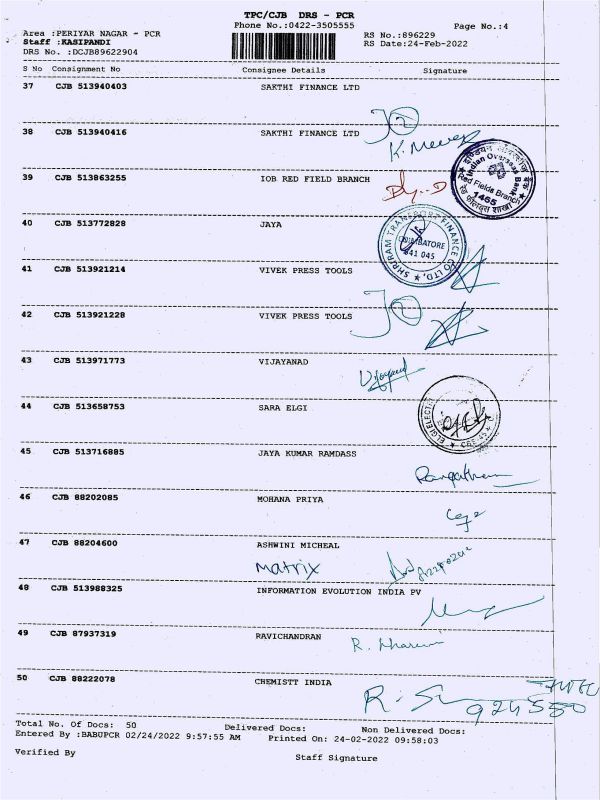 TPC/CJB DRS - PCR
Phone No.:0422-3505555
Page No.:4
Area :PERIYAR NAGAR - PCR
RS No.:896229
Staff :KASIPANDI
RS Date:24-Feb-2022
DRS No. :DCJB89622904
S No Consignment No Consignee Details Signature
37 CJB 513940403 SAKTHI FINANCE LTD
38 CJB 513940416 SAKTHI FINANCE LTD
39 CJB 513863255 IOB RED FIELD BRANCH
Indian Overseas Bank
Red Fields Branch
1465
40 CJB 513772828 JAYA
SHRIRAM TRANSPORT FINANCE CO LTD,
COIMBATORE
641 045
41 CJB 513921214 VIVEK PRESS TOOLS
42 CJB 513921228 VIVEK PRESS TOOLS
43 CJB 513971773 VIJAYANAD
44 CJB 513658753 SARA ELGI
45 CJB 513716885 JAYA KUMAR RAMDASS
46 CJB 88202085 MOHANA PRIYA
47 CJB 88204600 ASHWINI MICHEAL
Matrix
48 CJB 513988325 INFORMATION EVOLUTION INDIA PV
49 CJB 87937319 RAVICHANDRAN
50 CJB 88222078 CHEMISTT INDIA
Total No. Of Docs: 50 Delivered Docs: Non Delivered Docs:
Entered By :BABUPCR 02/24/2022 9:57:55 AM Printed On: 24-02-2022 09:58:03
Verified By Staff Signature